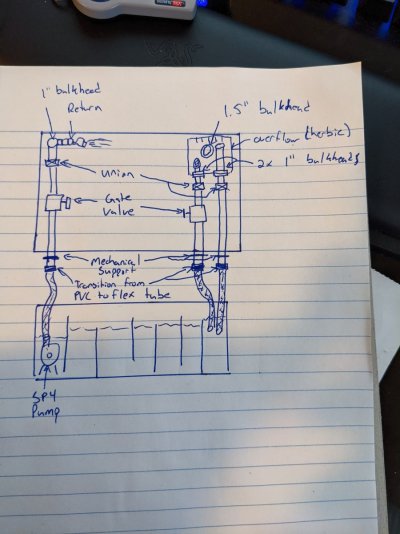 1" bulkhead
Return
1.5" bulkhead
overflow (herbie)
2x 1" bulkheads
union
Gate
valve
Mechanical
Support
Transition from
PVC to flex tube
SP4
Pump